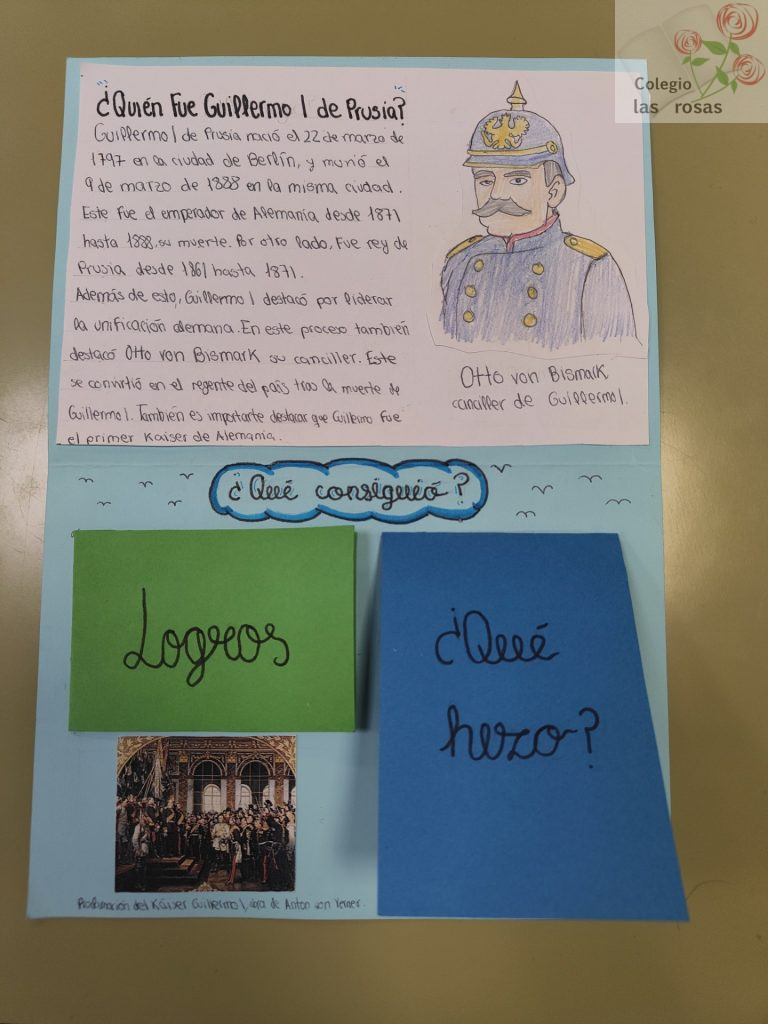 Colegio
las rosas
¿Quién Fue Guillermo I de Prusia?
Guillermo I de Prusia nació el 22 de marzo de
1797 en la ciudad de Berlín, y murió el
9 de marzo de 1888 en la misma ciudad.
Este fue el emperador de Alemania desde 1871
hasta 1888, su muerte. Por otro lado, fue rey de
Prusia desde 1861 hasta 1871.
Además de esto, Guillermo I destacó por liderar
la unificación alemana. En este proceso también
destacó Otto von Bismark su canciller. Este
se convirtió en el regente del país tras la muerte de
Guillermo I. También es importante destacar que Guillermo fue
el primer Kaiser de Alemania.
Otto von Bismark
canciller de Guillermo I.
¿Qué consiguió?
Logros
¿Qué
hizo?
Proclamación del Káiser Guillermo I, obra de Anton von Verner.